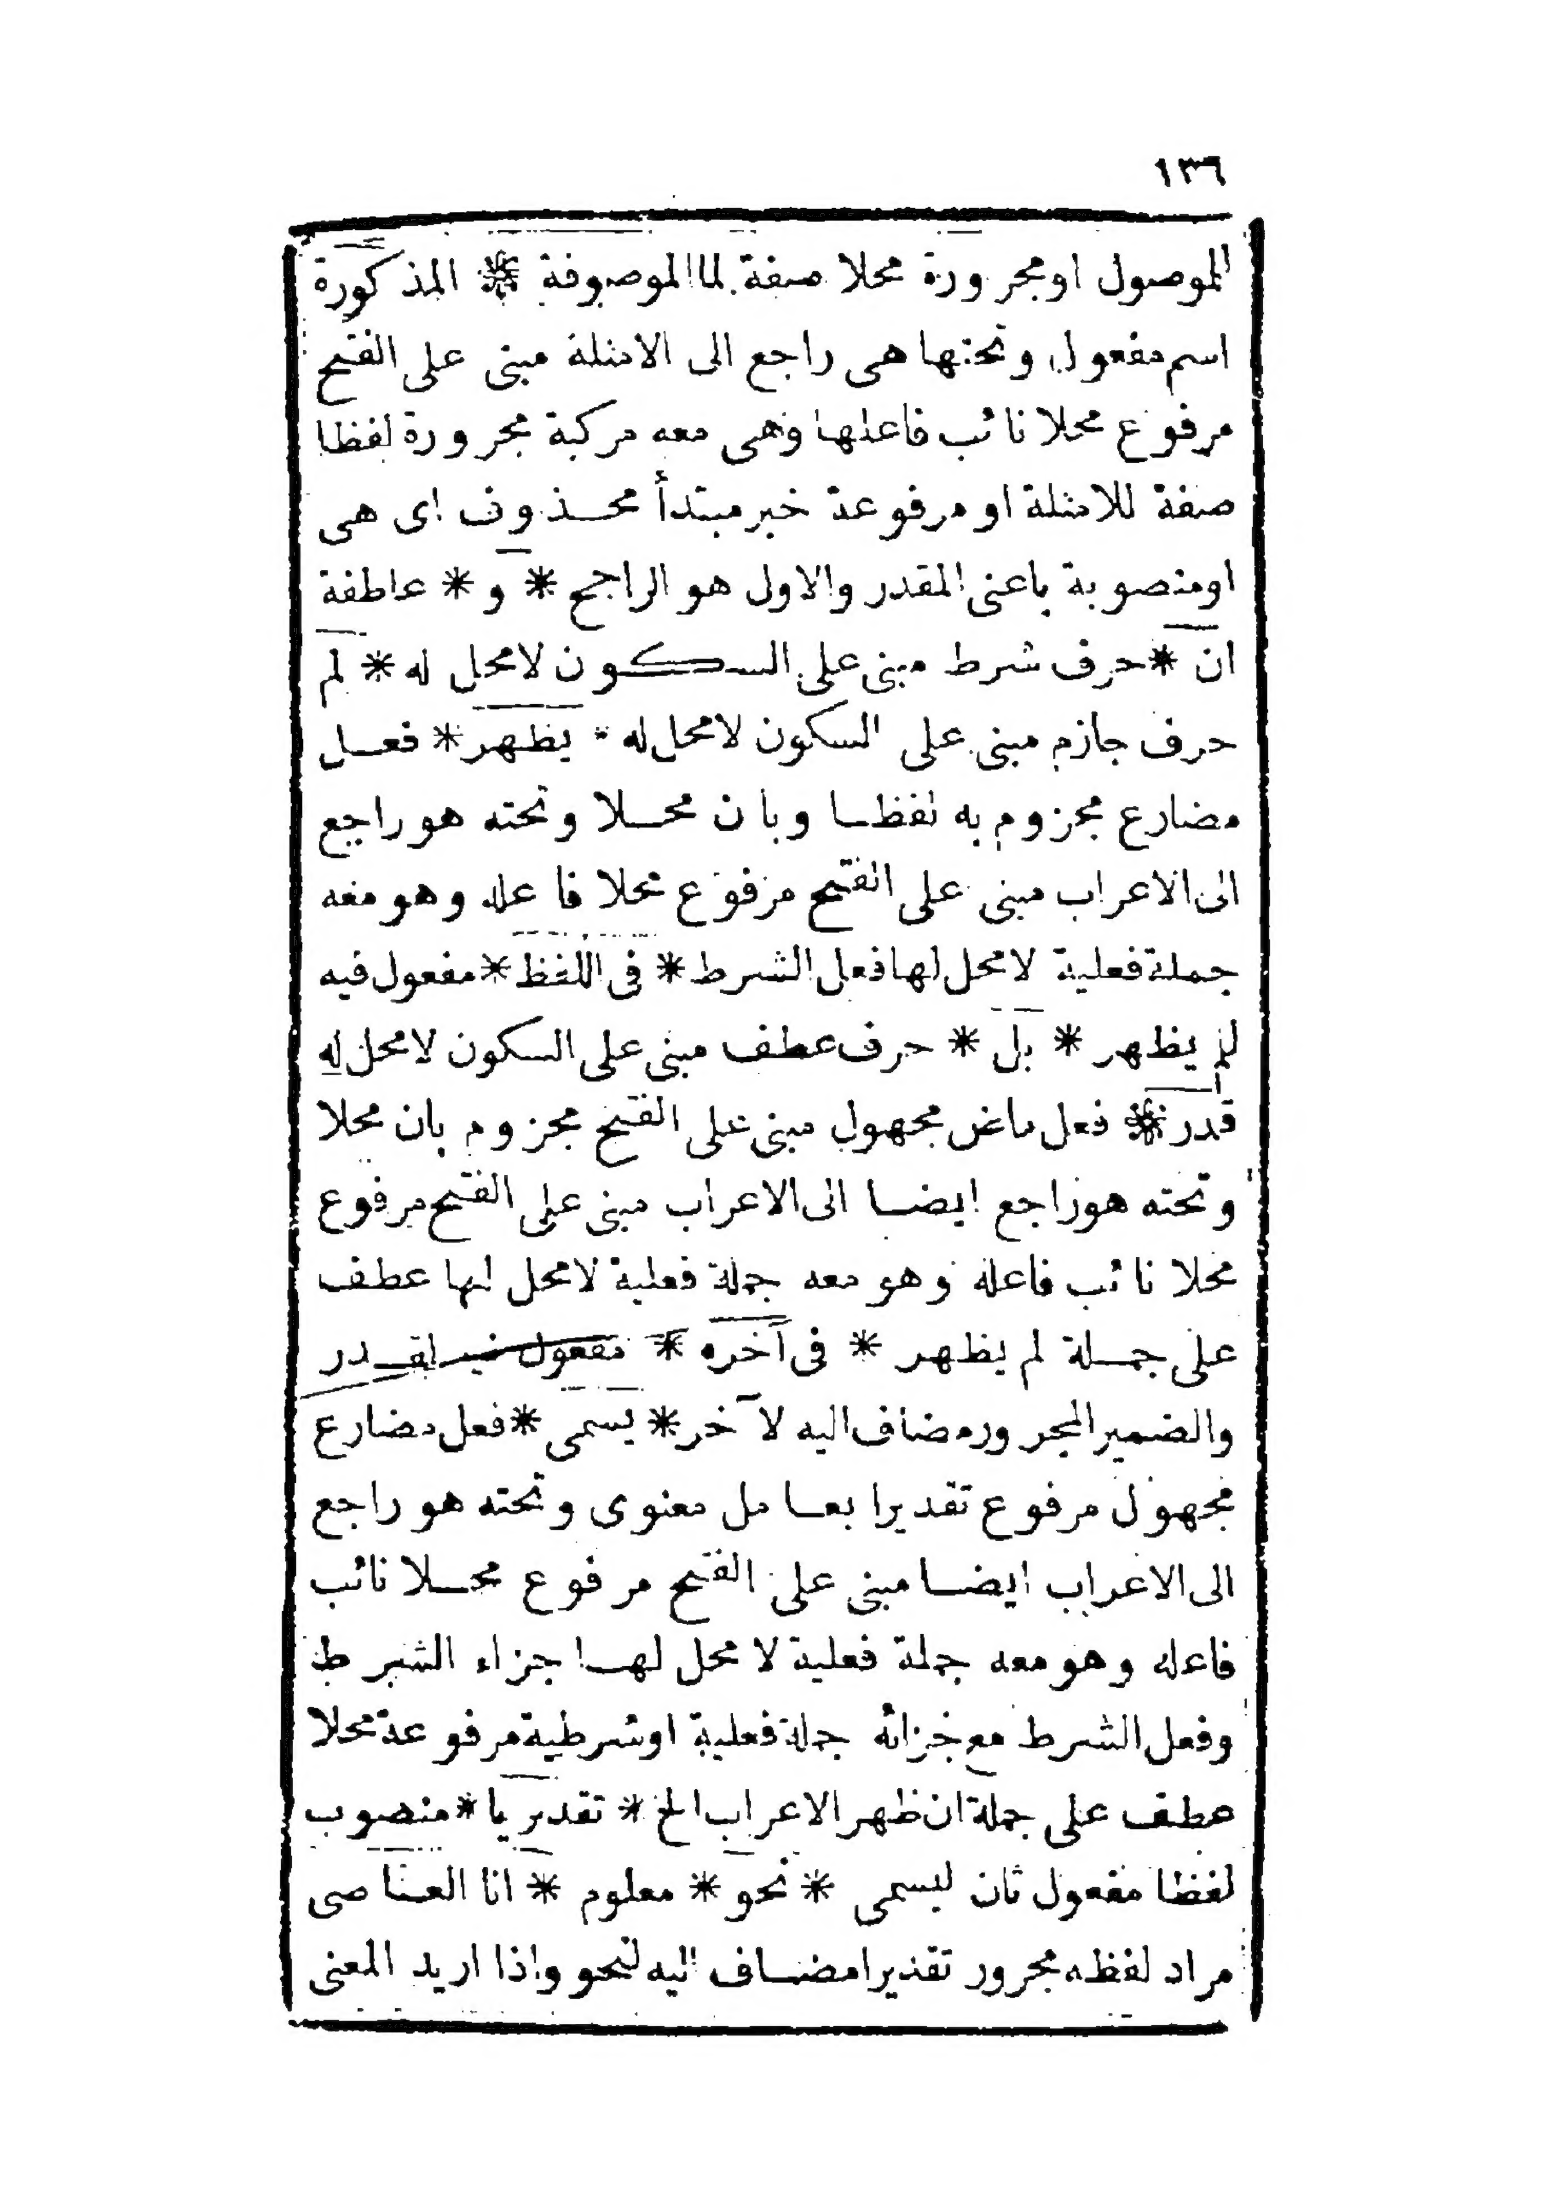 ١٣٦
الموصول او مجرورة محلا صفة لما الموصوفة * المذكورة
اسم مفعول وتحتها هى راجع الى الامثلة مبنى على الفتح
مرفوع محلا نائب فاعلها وهى معه مركبة مجرورة لفظا
صفة للامثلة او مرفوعة خبر مبتدأ محذوف اى هى
او منصوبة باعنى المقدر والاول هو الراجح * و * عاطفة
ان * حرف شرط مبنى على السكون لامحل له * لم
حرف جازم مبنى على السكون لامحل له * يظهر * فعل
مضارع مجزوم به لفظا وبان محلا وتحته هو راجع
الى الاعراب مبنى على الفتح مرفوع محلا فاعله وهو معه
جملة فعلية لامحل لها فعل الشرط * فى اللفظ * مفعول فيه
لم يظهر * بل * حرف عطف مبنى على السكون لامحل له
قدر * فعل ماض مجهول مبنى على الفتح مجزوم بان محلا
وتحته هو راجع ايضا الى الاعراب مبنى على الفتح مرفوع
محلا نائب فاعله وهو معه جملة فعلية لامحل لها عطف
على جملة لم يظهر * فى آخره * مفعول فيه لقدر
والضمير المجرور مضاف اليه لآخر * يسمى * فعل مضارع
مجهول مرفوع تقديرا بعامل معنوى وتحته هو راجع
الى الاعراب ايضا مبنى على الفتح مرفوع محلا نائب
فاعله وهو معه جملة فعلية لا محل لها جزاء الشرط
وفعل الشرط مع جزائه جملة فعلية او شرطية مرفوعة محلا
عطف على جملة ان ظهر الاعراب الخ * تقديريا * منصوب
لفظا مفعول ثان ليسمى * نحو * معلوم * انا العاصى
مراد لفظه مجرور تقديرا مضاف اليه لنحو واذا اريد المعنى